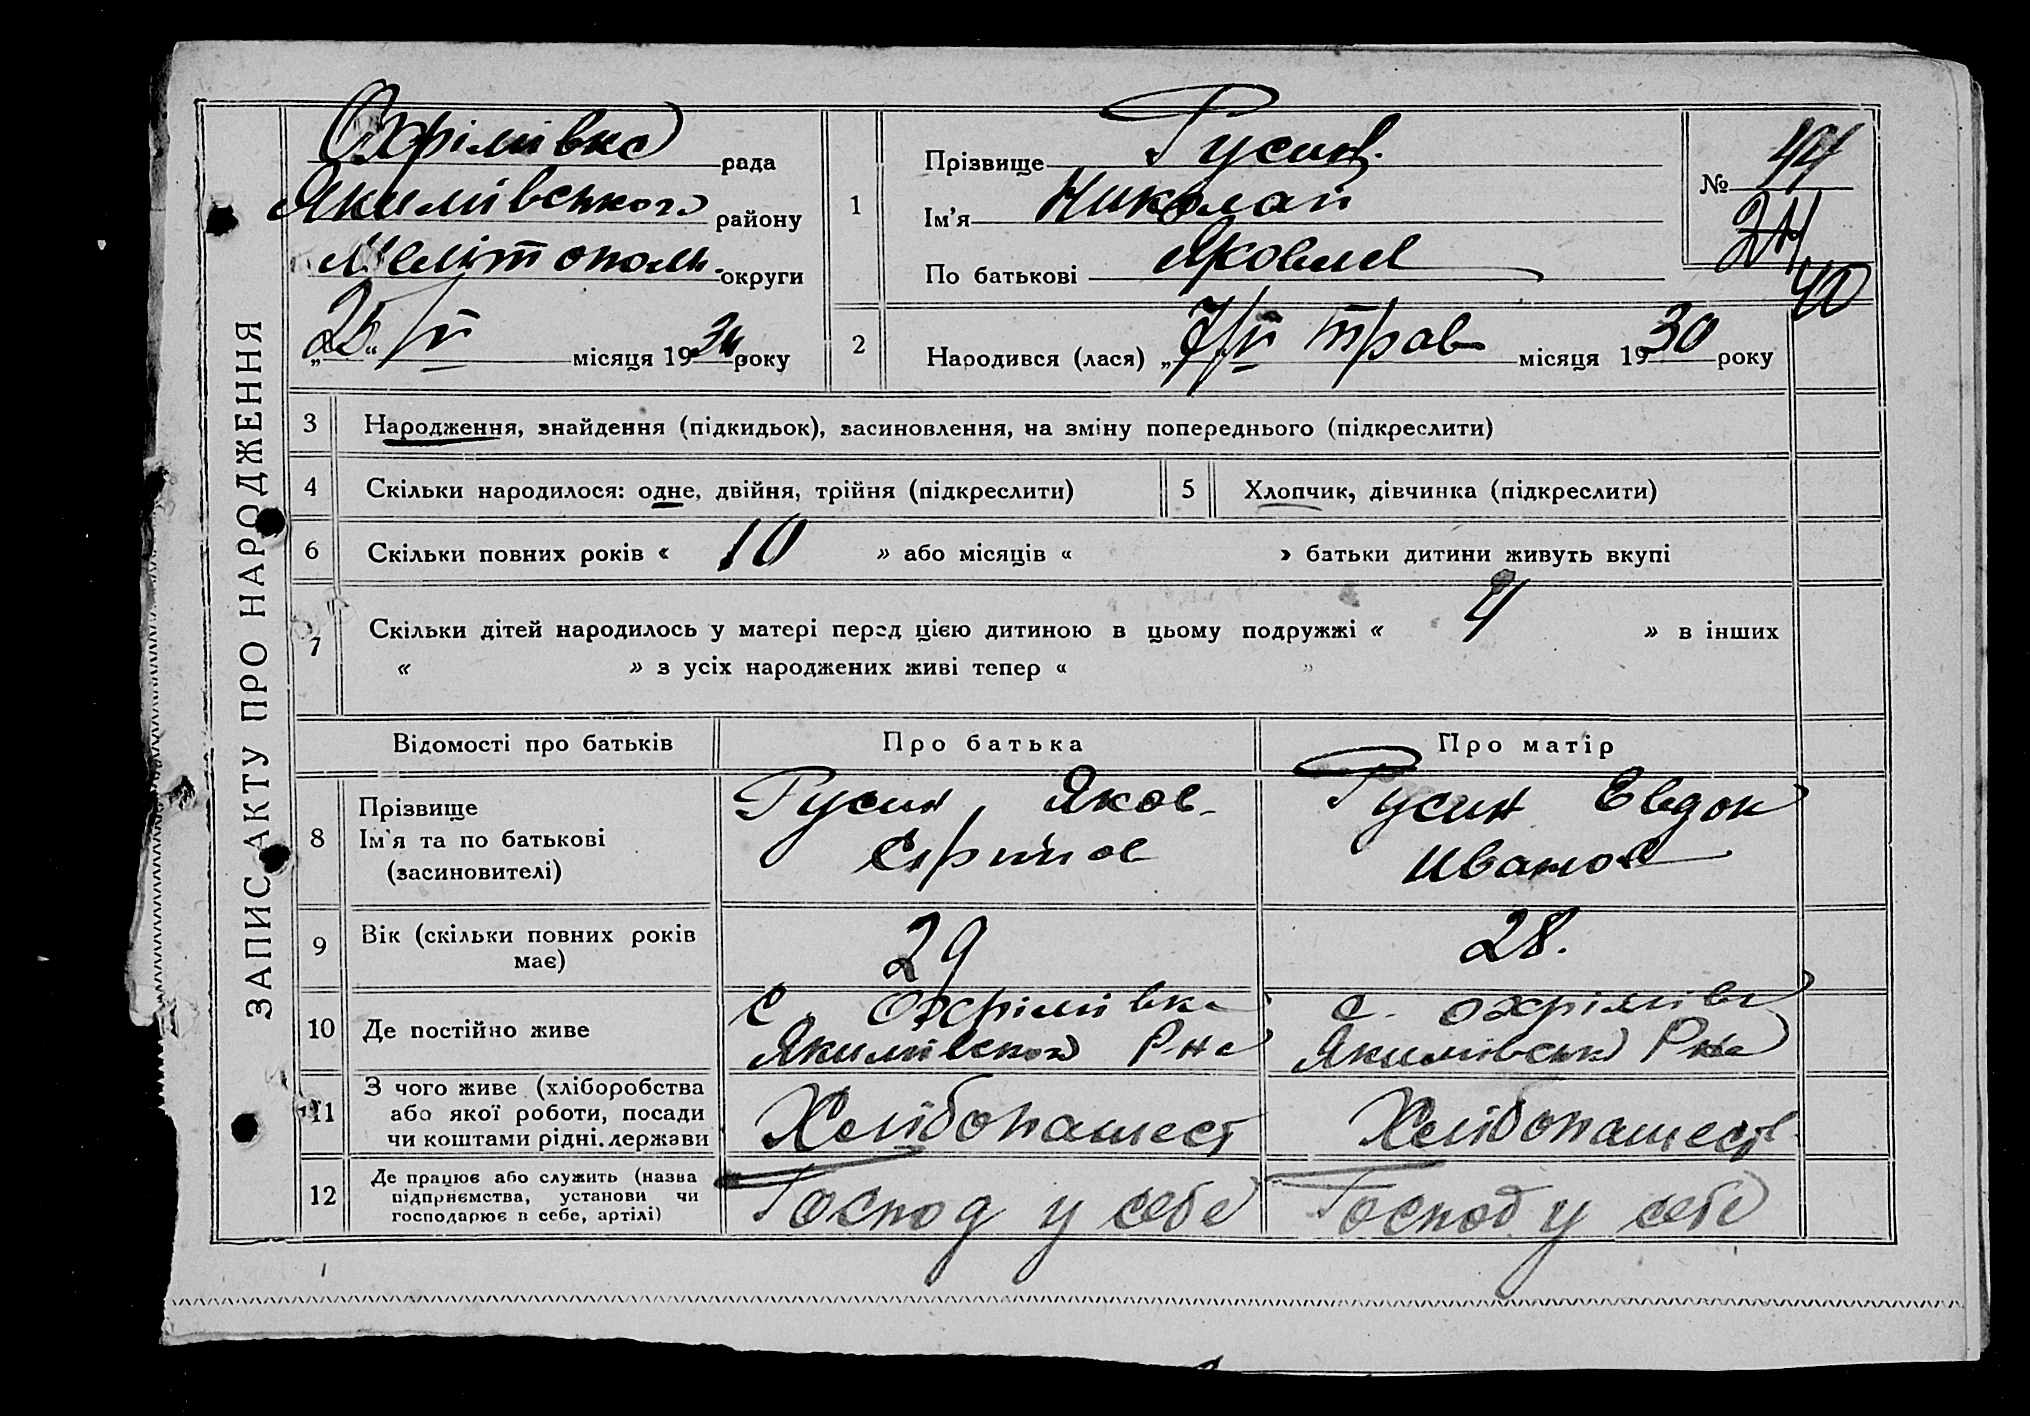 ЗАПИС АКТУ ПРО НАРОДЖЕННЯ
Охрімівка рада
Якимівського району
Мелітополь. округи
„25“ /V місяця 1930 року
1
Прізвище
Ім’я Николай
По батькові Яковлев
№ 44
40
2
Народився (лася) „7/V трав місяця 1930 року
3 Народження, знайдення (підкидьок), засиновлення, на зміну попереднього (підкреслити)
4 Скільки народилося: одне, двійня, трійня (підкреслити)
5 Хлопчик, дівчинка (підкреслити)
6 Скільки повних років « 10 » або місяців « » батьки дитини живуть вкупі
7 Скільки дітей народилось у матері перед цією дитиною в цьому подружжі « 4 » в інших
« » з усіх народжених живі тепер « »
Відомості про батьків Про батька Про матір
8 Прізвище
Ім’я та по батькові
(засиновителі)
Русин Яков
Русин Евдок
Иванов
9 Вік (скільки повних років
має)
29
28.
10 Де постійно живе
с. Охрімівка
Якимівського Р-на
с. Охрімівка
Якимівськ Р-на
11 З чого живе (хліборобства
або якої роботи, посади
чи коштами рідні. держави
Хлібопашест
Хлібопашеств
12 Де працює або служить (назва
підприємства, установи чи
господарює в себе, артілі)
Господ у себе
Господ у себе